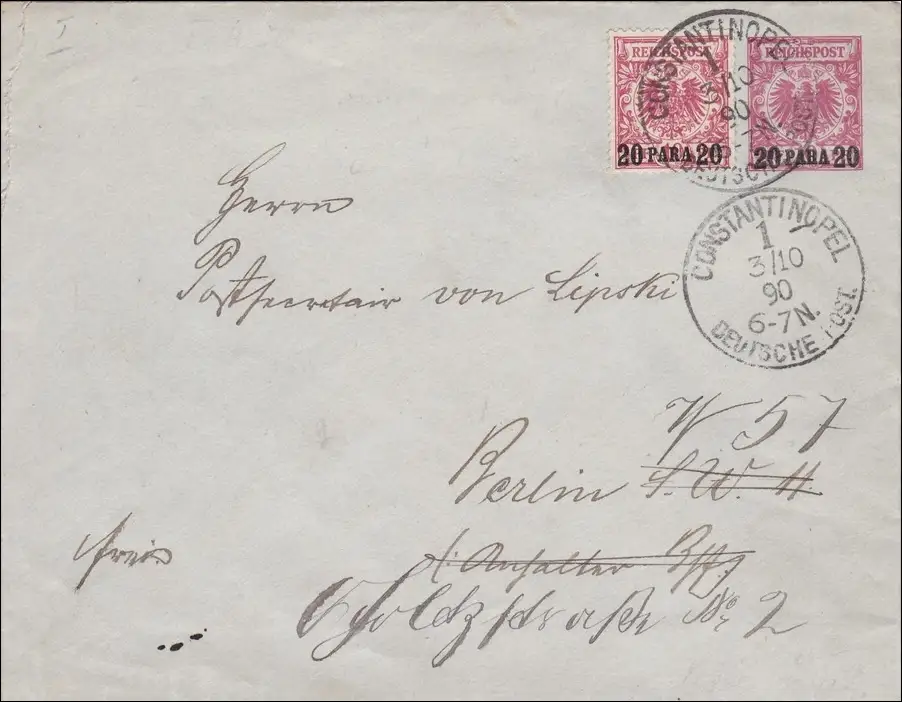 REICHSPOST
20 PARA 20
REICHSPOST
20 PARA 20
CONSTANTINOPEL
1
3/10
90
DEUTSCHE
CONSTANTINOPEL
1
3/10
90
6-7N.
DEUTSCHE POST.
Herrn
Postsecretair von Lipski
W 57
Berlin S.W. 11.
(: Anhalter Bhf :)
Goltzstraße No 2
frei